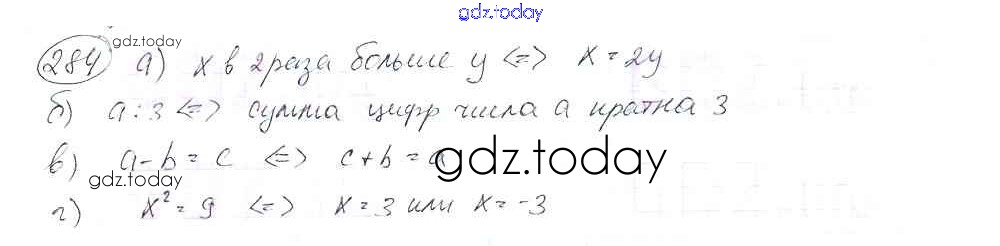 gdz.today
gdz.today
284 а) x в 2 раза больше y <=> x = 2y
б) a : 3 <=> сумма цифр числа a кратна 3
в) a - b = c <=> c + b = a
gdz.today
gdz.today
г) x² = 9 <=> x = 3 или x = -3